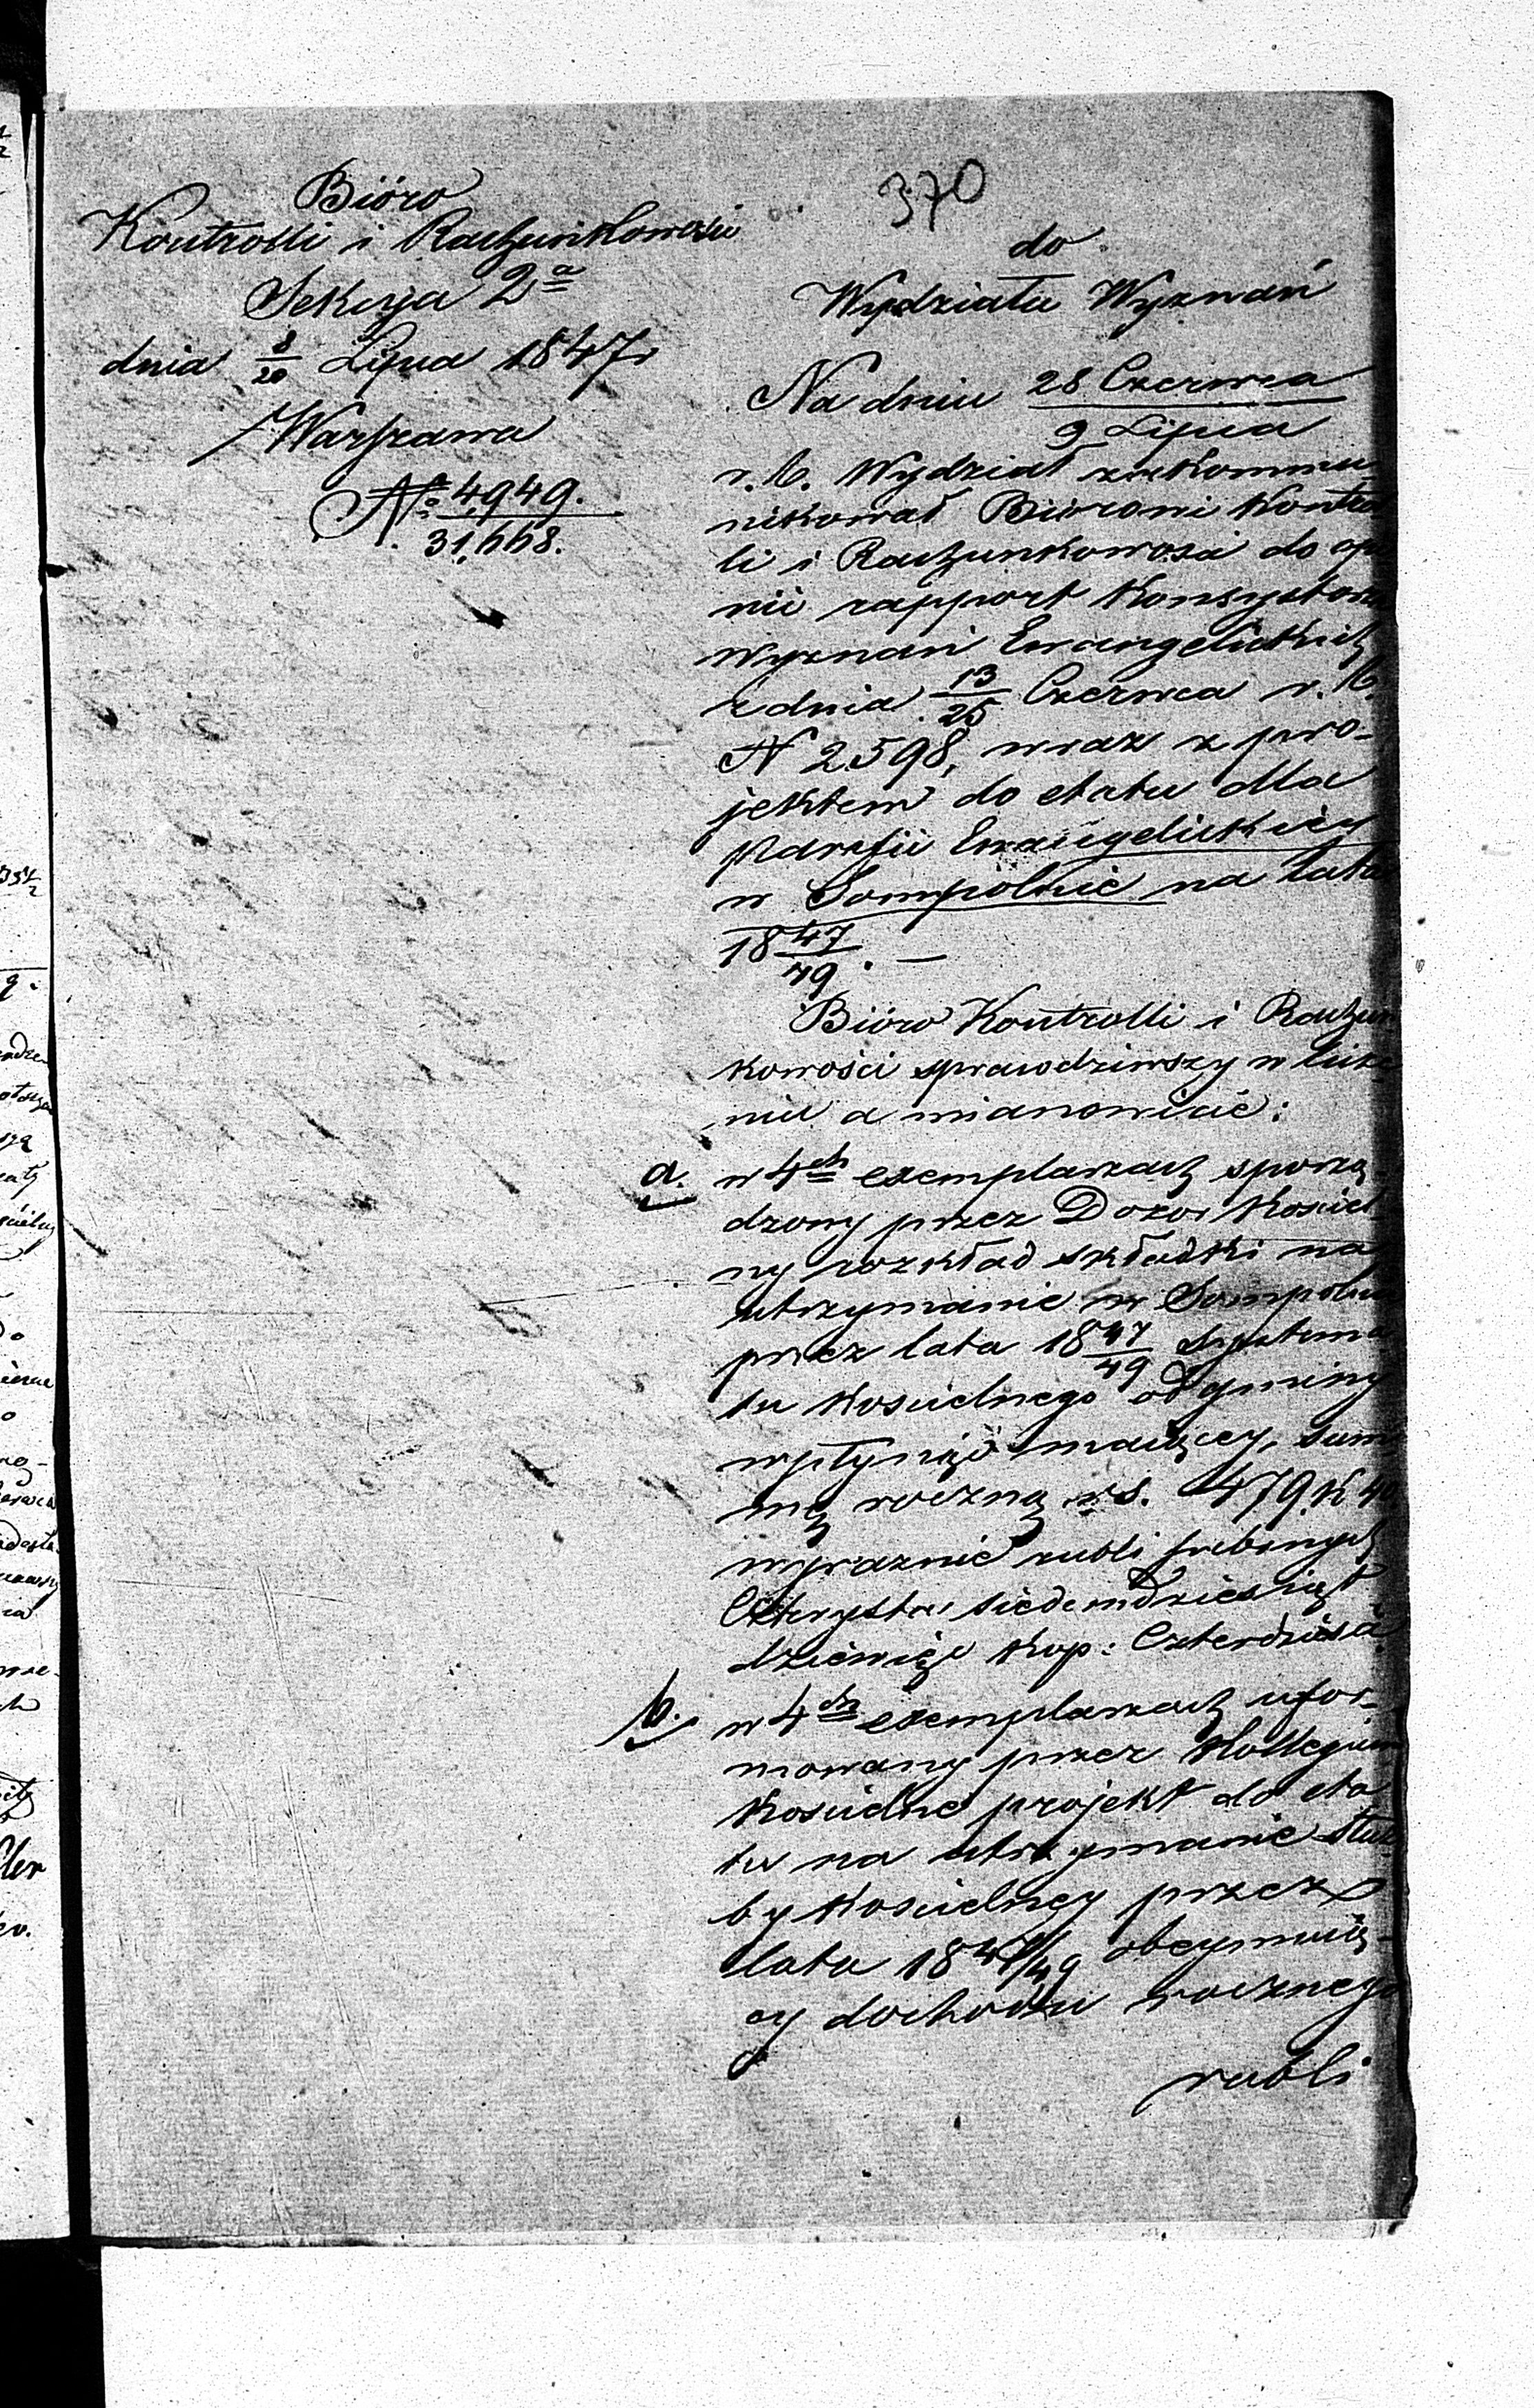 Bióro
Kontrolli i Rachunkowości
Sekcja 2a
dnia 8/20 Lipca 1847 r
Warszawa
No 4949.
31,668.
370
do
Wydziału Wyznań
Na dniu 28 Czerwca
9 Lipca
r.b. Wydział zakommu
nikował Biórowi Kontro
li i Rachunkowości do opi
nii rapport Konsystorza
Wyznań Ewangelickich
z dnia 13/25 Czerwca r.b.
N 2598, wraz z pro-
jektem do etatu dla
Parafii Ewangelickiey
w Sompolnie na lata
1847/49. —
Bióro Kontrolli i Rachun
kowości sprawdziwszy w licze
niu a mianowicie:
a. w 4ch exemplarzach sporzą
dzony przez Dozór Kościel
ny rozkład składki na
utrzymanie w Sompolnie
przez lata 1847/49 Systema
tu Kościelnego od gminy
wpłynąć maiącey, sum
mę roczną rs. 479 k 40
wyraznie rubli srebrnych
Czterysta siedemdziesiąt
dziewięć kop: Czterdzieści
b. w 4ch exemplarzach ufor-
mowany przez Kollegium
Kościelne projekt do eta
tu na utrzymanie służ
by Kościelney przez
lata 1847/49 obeymuią-
cy dochodu rocznego
rubli